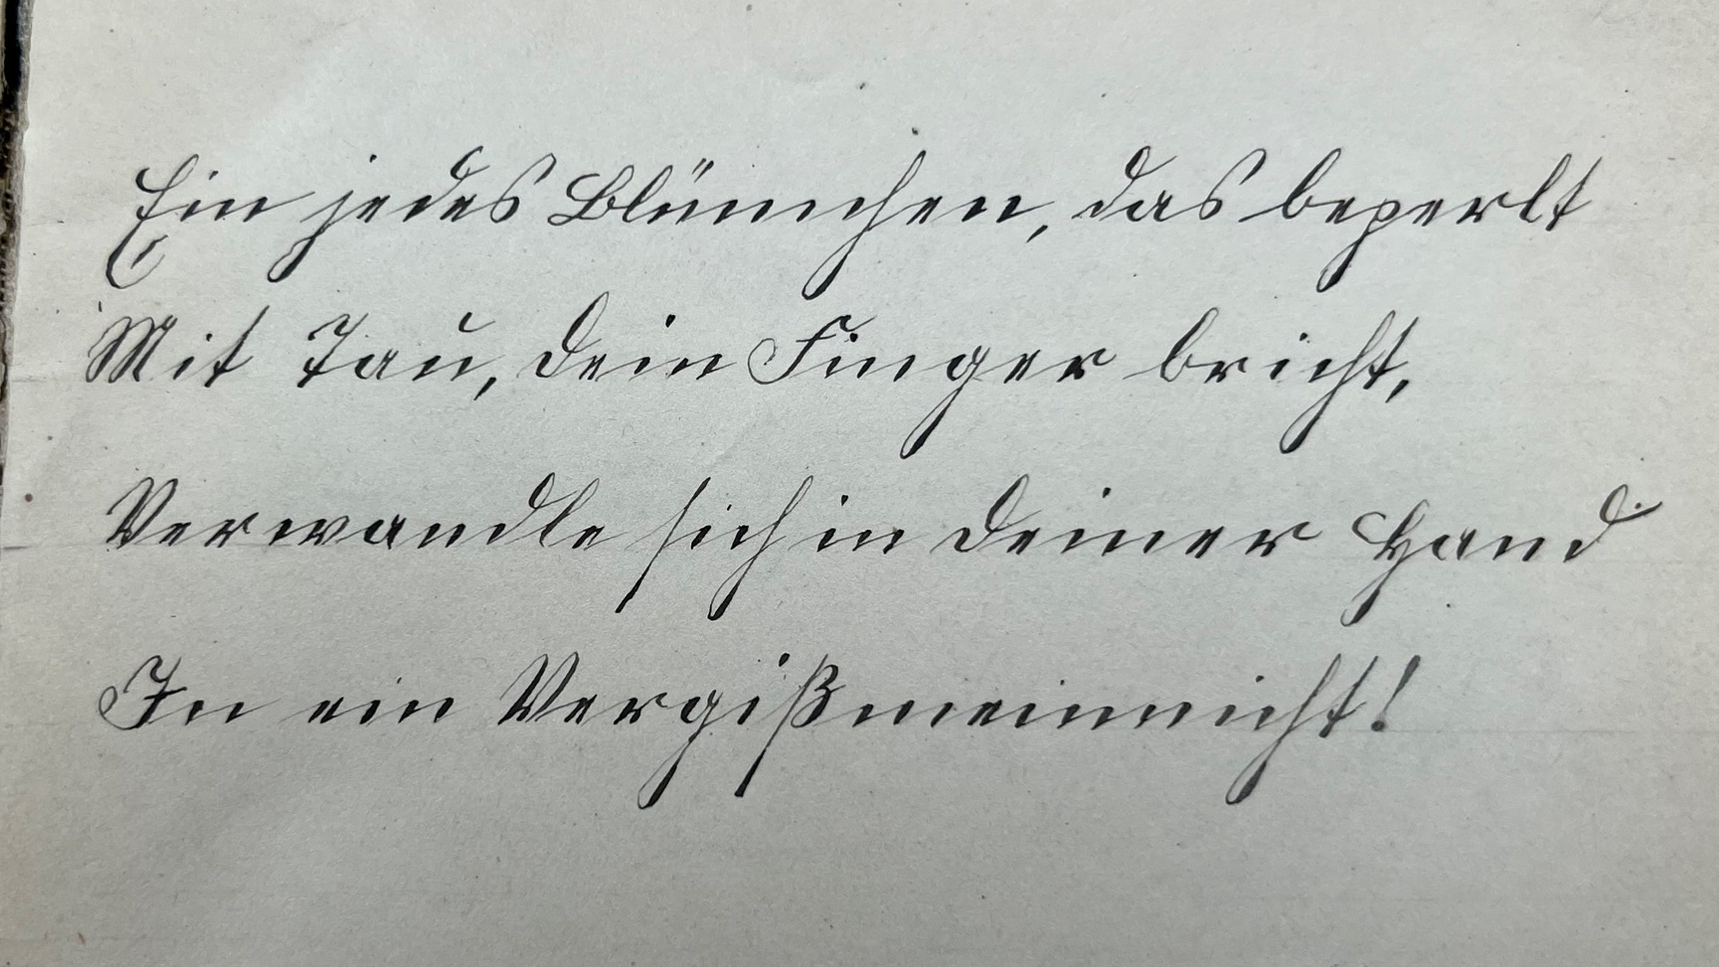 Ein jedes Blümchen, das beperlt
Mit Tau, dein Finger bricht,
Verwandle sich in deiner Hand
In ein Vergißmeinnicht!